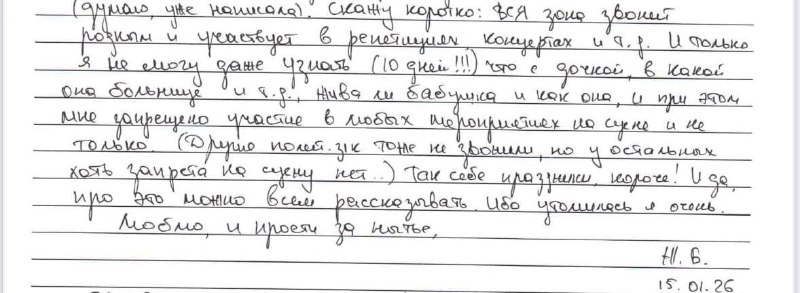 (думаю, уже написала). Скажу коротко: вся зона звонит
родным и участвует в репетициях концертах и т.д. И только
я не могу даже узнать (10 дней!!!) что с дочкой, в какой
она больнице и т.д., жива ли бабушка и как она, и при этом
мне запрещено участие в любых мероприятиях на сцене и не
только. (Другие полит. з/к тоже не звонили, но у остальных
хоть запрета на сцену нет..) Так себе праздники, короче! И да,
про это можно всем рассказывать. Ибо утомилась я очень.
Люблю, и прости за нытье,
Ж. Б.
15.01.26